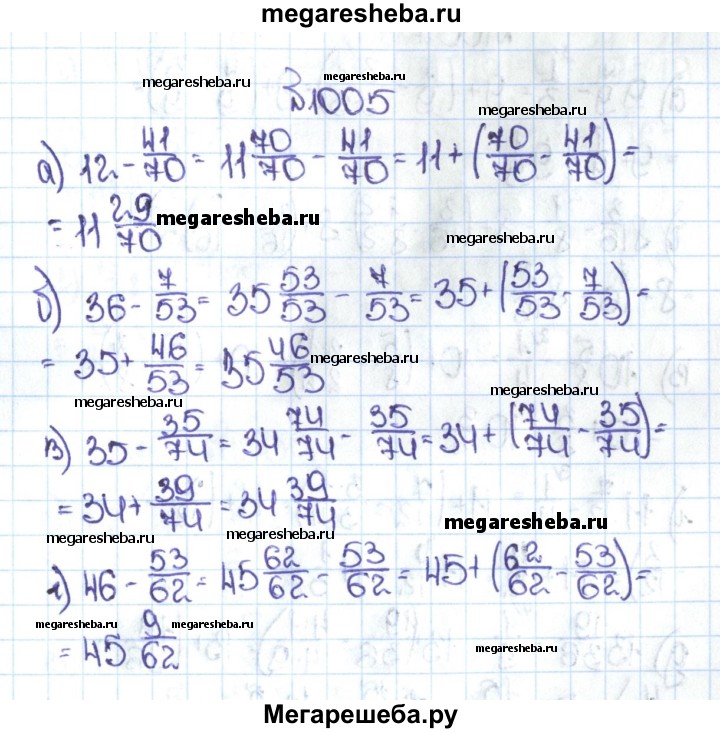 megaresheba.ru
megaresheba.ru megaresheba.ru
№1005 megaresheba.ru
а) 12 - 41/70 = 11 70/70 - 41/70 = 11 + (70/70 - 41/70) =
= 11 29/70 megaresheba.ru megaresheba.ru
б) 36 - 7/53 = 35 53/53 - 7/53 = 35 + (53/53 - 7/53) =
= 35 + 46/53 = 35 46/53 megaresheba.ru
megaresheba.ru megaresheba.ru
в) 35 - 35/74 = 34 74/74 - 35/74 = 34 + (74/74 - 35/74) =
= 34 + 39/74 = 34 39/74
megaresheba.ru
megaresheba.ru megaresheba.ru
г) 46 - 53/62 = 45 62/62 - 53/62 = 45 + (62/62 - 53/62) =
megaresheba.ru megaresheba.ru
= 45 9/62 megaresheba.ru
Мегарешеба.ру